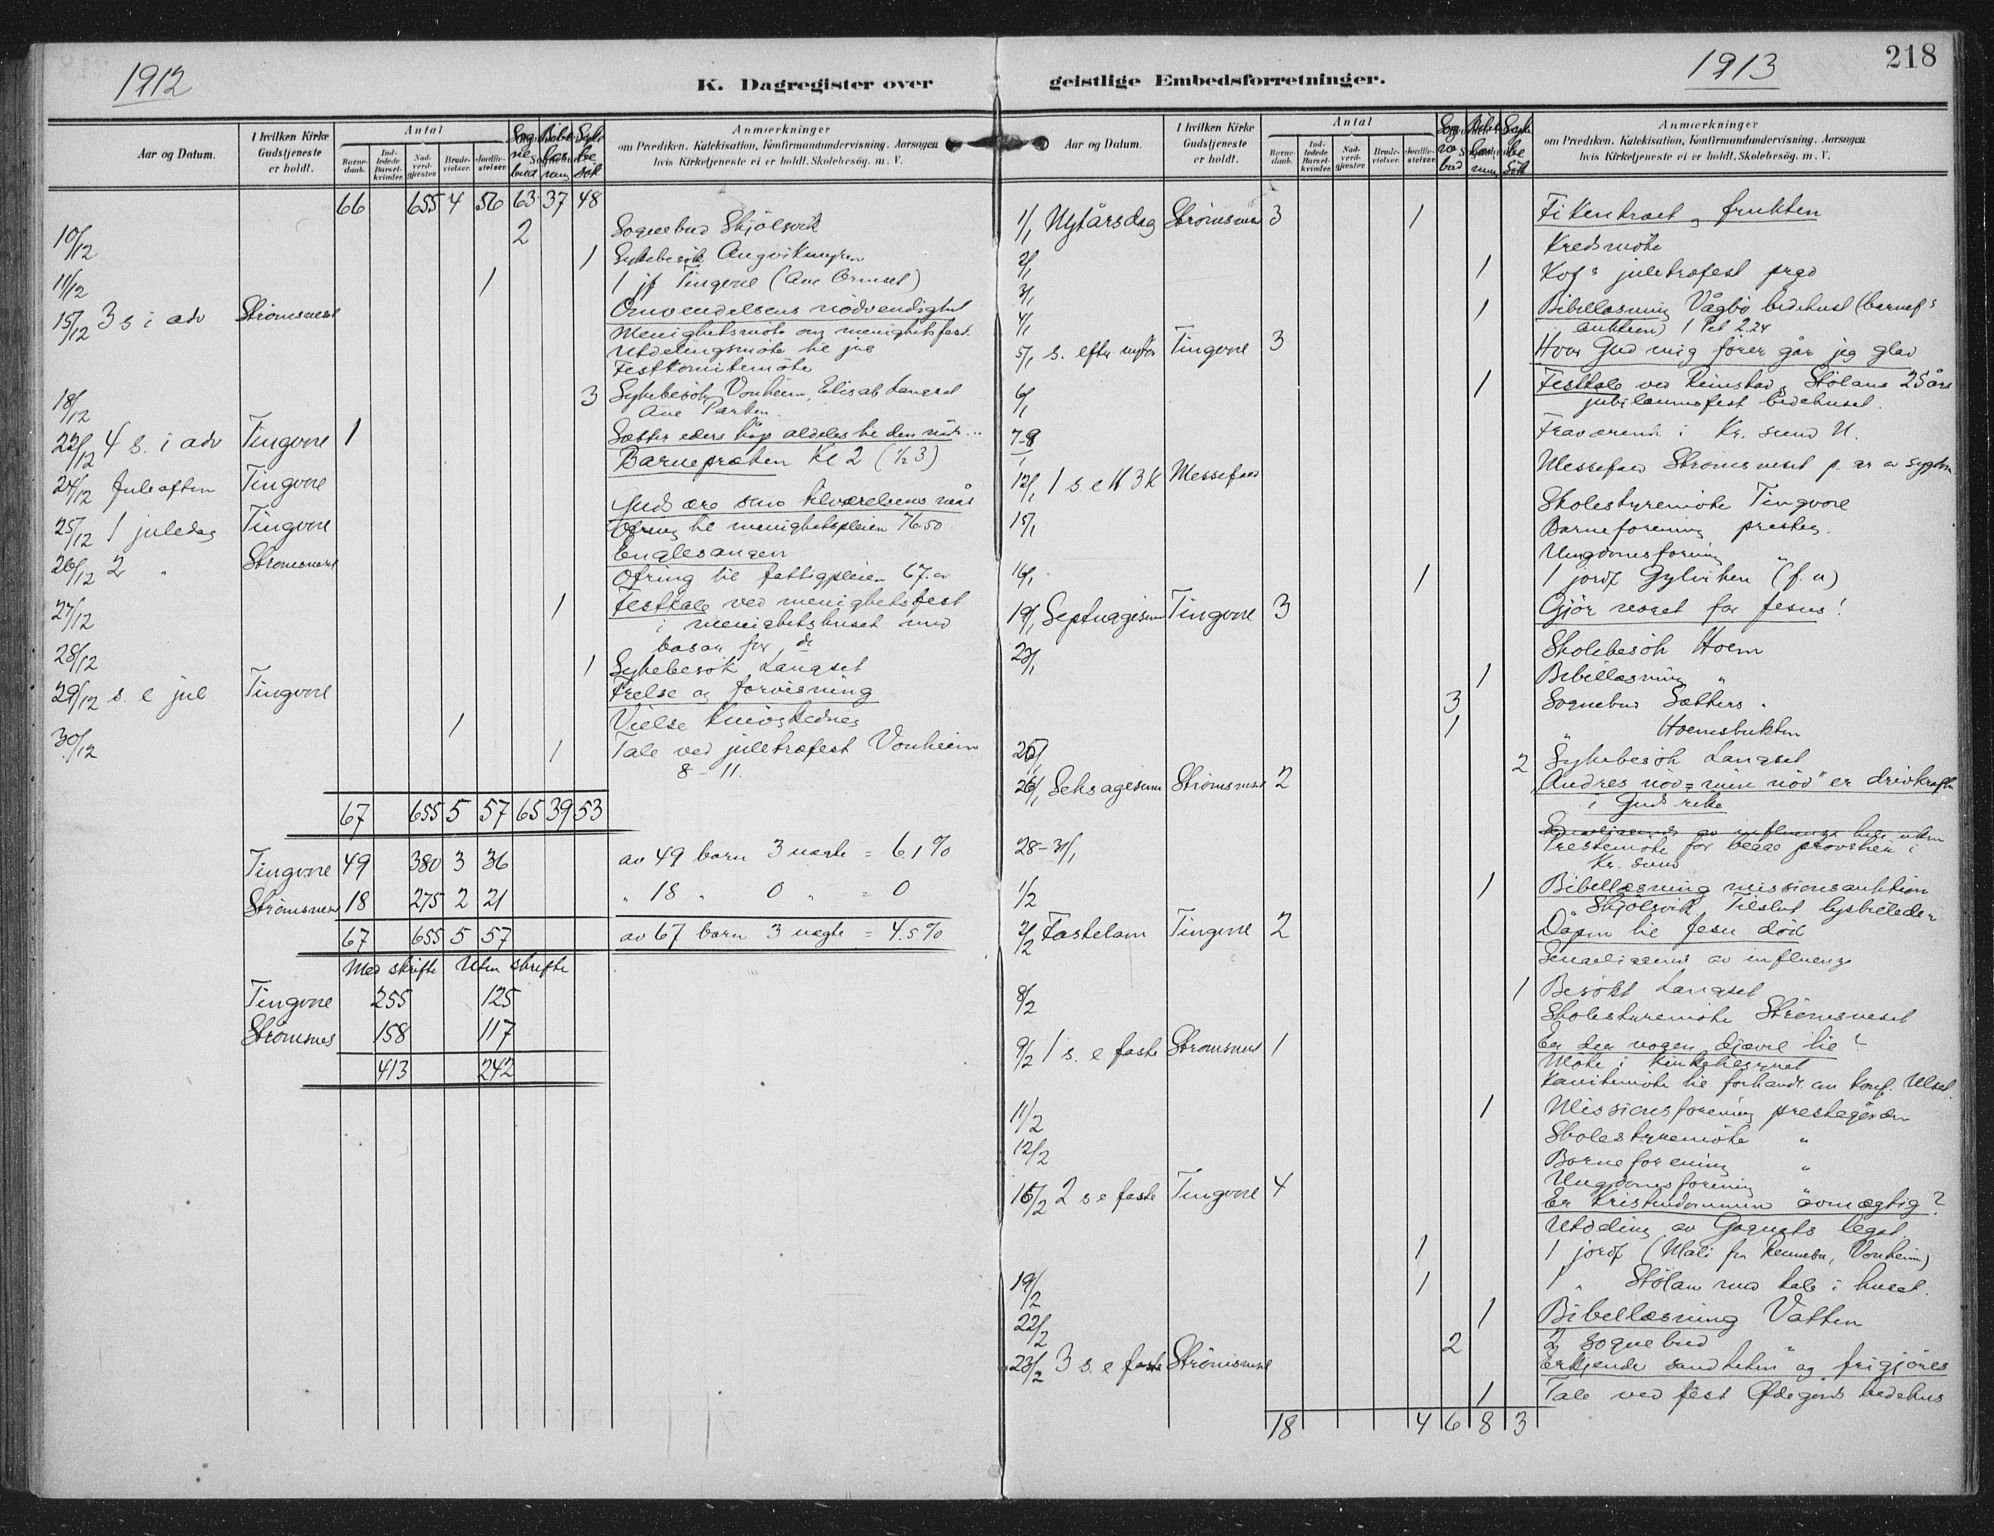 1912
K. Dagregister over
Aar og Datum.
I hvilken Kirke Gudstjeneste er holdt.
Antal
Barnedaab.
Indledede Barselkvinder.
Nadverdgjæster.
Brudevielser.
Jordfæstelser.
Anmærkninger
om Prædiken, Katekisation, Konfirmandundervisning. Aarsagen
hvis Kirketjeneste ei er holdt. Skolebesøg. m. V.
66 655 4 56 63 37 48
10/12 2 Sognebud Skjølsvik
1 Sykebesök Angvikmyren
11/12 1 1 jf Tingvoll (Ane Ormset)
15/12 3 s i adv Strömsnes Omvendelsens nödvendighet
Menighetsmöte om menighetsfest.
Utdelingsmöte til jul
Festkomitemöte
18/12 3 Sykebesök Vonheim, Elisab Langset
Ane Parken
22/12 4 s. i adv Tingvoll 1 Sætter eders håp aldeles til den
Barnepræken Kl 2 (1/2 3)
24/12 Juleaften Tingvoll
25/12 1 juledag Tingvoll Ofring til menighetspleien 76.50
26/12 2 " Strömsnes Englesangen
Ofring til fattigpleien 67.
27/12 1 Festtale ved menighetsfest
i menighetshuset med
basar for do
28/12 1 Sykebesök Langset
29/12 s. e jul Tingvoll Frelse og forvisning
1 Vielse
30/12 1 Tale ved juletræfest Vonheim
8-11.
67 655 5 57 65 39 53
Tingvoll 49 380 3 36 av 49 barn 3 uegte = 6.1 %
Strömsnes 18 275 2 21 " 18 " 0 " = 0
67 655 5 57 av 67 barn 3 uegte = 4.5 %
Med skrifte Uten skrifte
Tingvoll 255 125
Strömsnes 158 117
413 242
1913
218
geistlige Embedsforretninger.
Aar og Datum.
I hvilken Kirke Gudstjeneste er holdt.
Antal
Barnedaab.
Indledede Barselkvinder.
Nadverdgjæster.
Brudevielser.
Jordfæstelser.
Anmærkninger
om Prædiken, Katekisation, Konfirmandundervisning. Aarsagen
hvis Kirketjeneste ei er holdt. Skolebesög. m. V.
1/1 Nytårsdag Strömsnes 3 1 Fikentræet og frukten
2/1 Kredsmöte
1 juletræfest prgd
3/1
4/1 1 Bibellæsning Vågbö bedehus (barnef.s
auktion) 1 Pet 2.24
5/1 s. efter nytår Tingvoll 3 Hvor Gud mig förer går jeg glad
6/1 1 Festtale ved Stölans 25 års
jubilæumsfest bedehuset.
7-8/1 Fraværende i Kr. sund N.
12/1 1 s e H 3 K Messefald Messefald Strömsneset p. gr. av sygdom
15/1 Skolestyremöte Tingvoll
Barneforening presteg.
Ungdomsforening "
16/1 1 1 jordf Gylviken
19/1 Septuagesima Tingvoll 3 Gjör noget for Jesus!
23/1 Skolebesök Hoem
1 Bibellæsning "
3 Sognebud Sætters "
1 " Hoemsbukten
25/1 2 Sykebesök Langset
26/1 Seksagesima Strömsnes 2 "Andres nöd = min nöd" er drivkraften
i Guds rike
28-31/1 Prestemöte for begge provstier i
Kr. sund
1/2 1 Bibellæsning missionsauktion
Skjölsvik. Tilslut lysbilleder
2/2 Fastelavn Tingvoll 2 Dåpen til Jesu död
Sengeliggende av influenza
8/2 1 Besökt Langset
Skolestyremöte Strömsneset
9/2 1 s. e faste Strömsnes 1 Er der nogen djævel til?
Möte i kirketilsynet
Komitemöte til forhandl. om konf. Ulset.
11/2 1 Missionsforening prestegården
12/2 Skolestyremöte "
Barneforening "
Ungdomsforening "
16/2 2 s e faste Tingvoll 4 Er Kristendommen avmægtig?
Utdeling av legat.
1 1 jordf (Mali fra Rennebu, Vonheim)
19/2 1 1 " Stölan med tale i huset.
22/2 1 Bibellæsning Vatten
2 2 sognebud
23/2 3 s. e faste Strömsnes "Erkjende sandheten" og frigjöres
1 Tale ved fest Ödegård bedehus
18 4 6 8 3